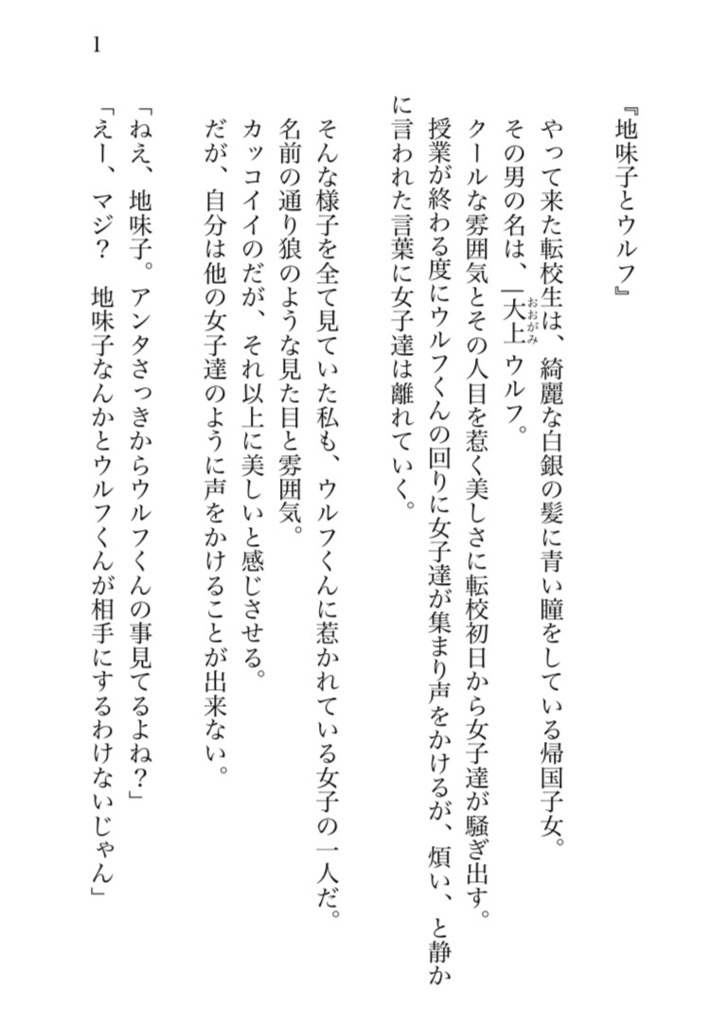 『地味子とウルフ』
やって来た転校生は、綺麗な白銀の髪に青い瞳をしている帰国子女。
その男の名は、|大上 ウルフ。
おおがみ
クールな雰囲気とその人目を惹く美しさに転校初日から女子達が騒ぎ出す。
授業が終わる度にウルフくんの回りに女子達が集まり声をかけるが、煩い、と静か
に言われた言葉に女子達は離れていく。
そんな様子を全て見ていた私も、ウルフくんに惹かれている女子の一人だ。
名前の通り狼のような見た目と雰囲気。
カッコイイのだが、それ以上に美しいと感じさせる。
だが、自分は他の女子達のように声をかけることが出来ない。
「ねえ、地味子。アンタさっきからウルフくんの事見てるよね？」
「えー、マジ？　地味子なんかとウルフくんが相手にするわけないじゃん」
1